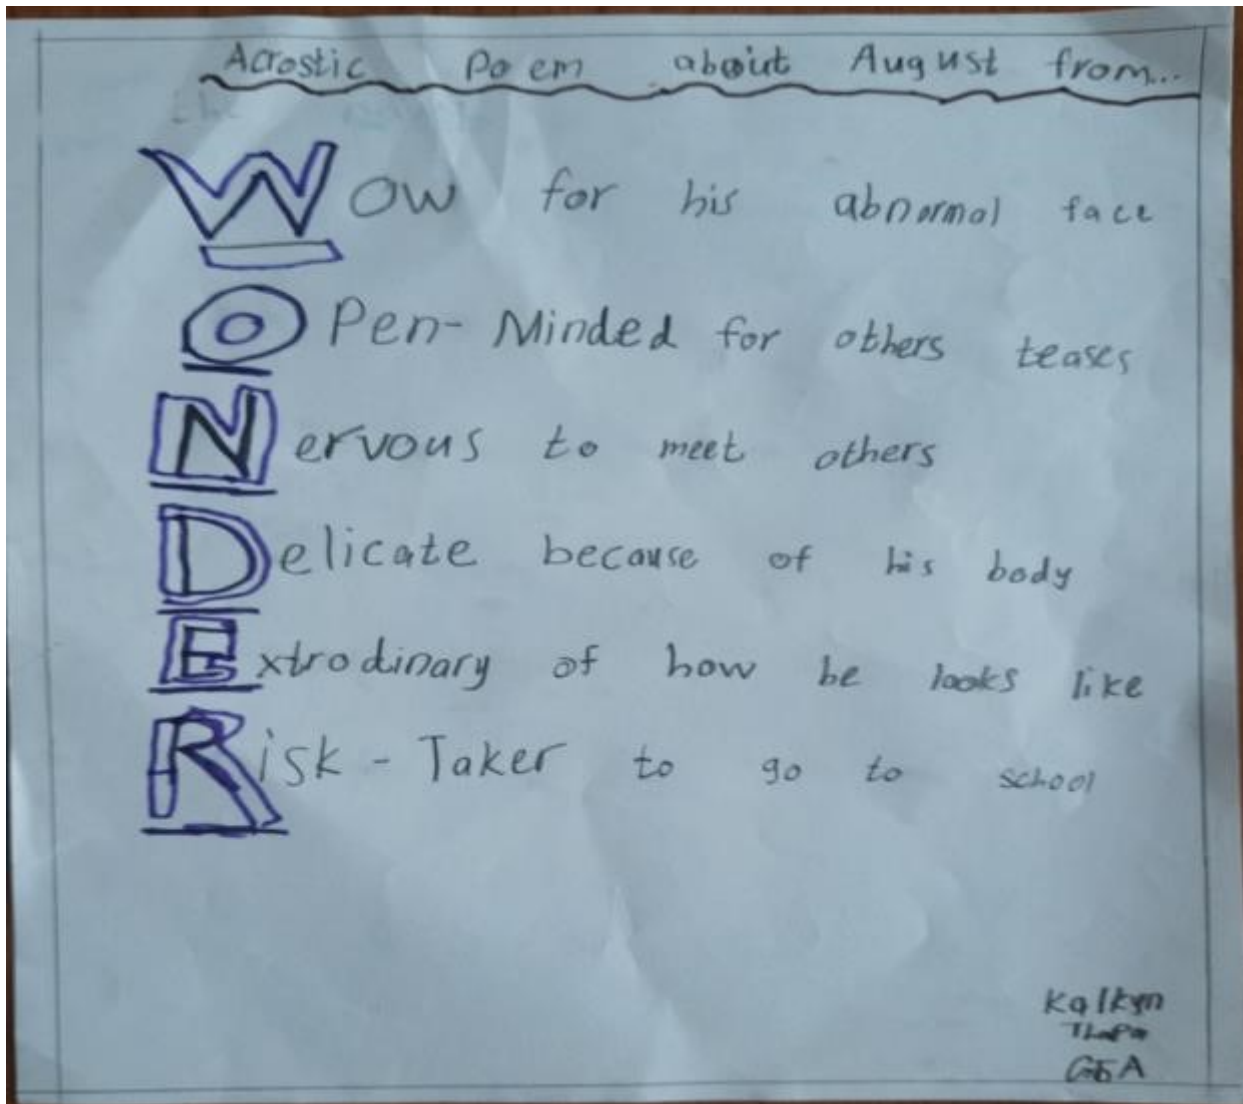 Acrostic Poem about August from...
Wow for his abnormal face
OPen-Minded for others teases
Nervous to meet others
Delicate because of his body
Extrodinary of how he looks like
Risk-Taker to go to school